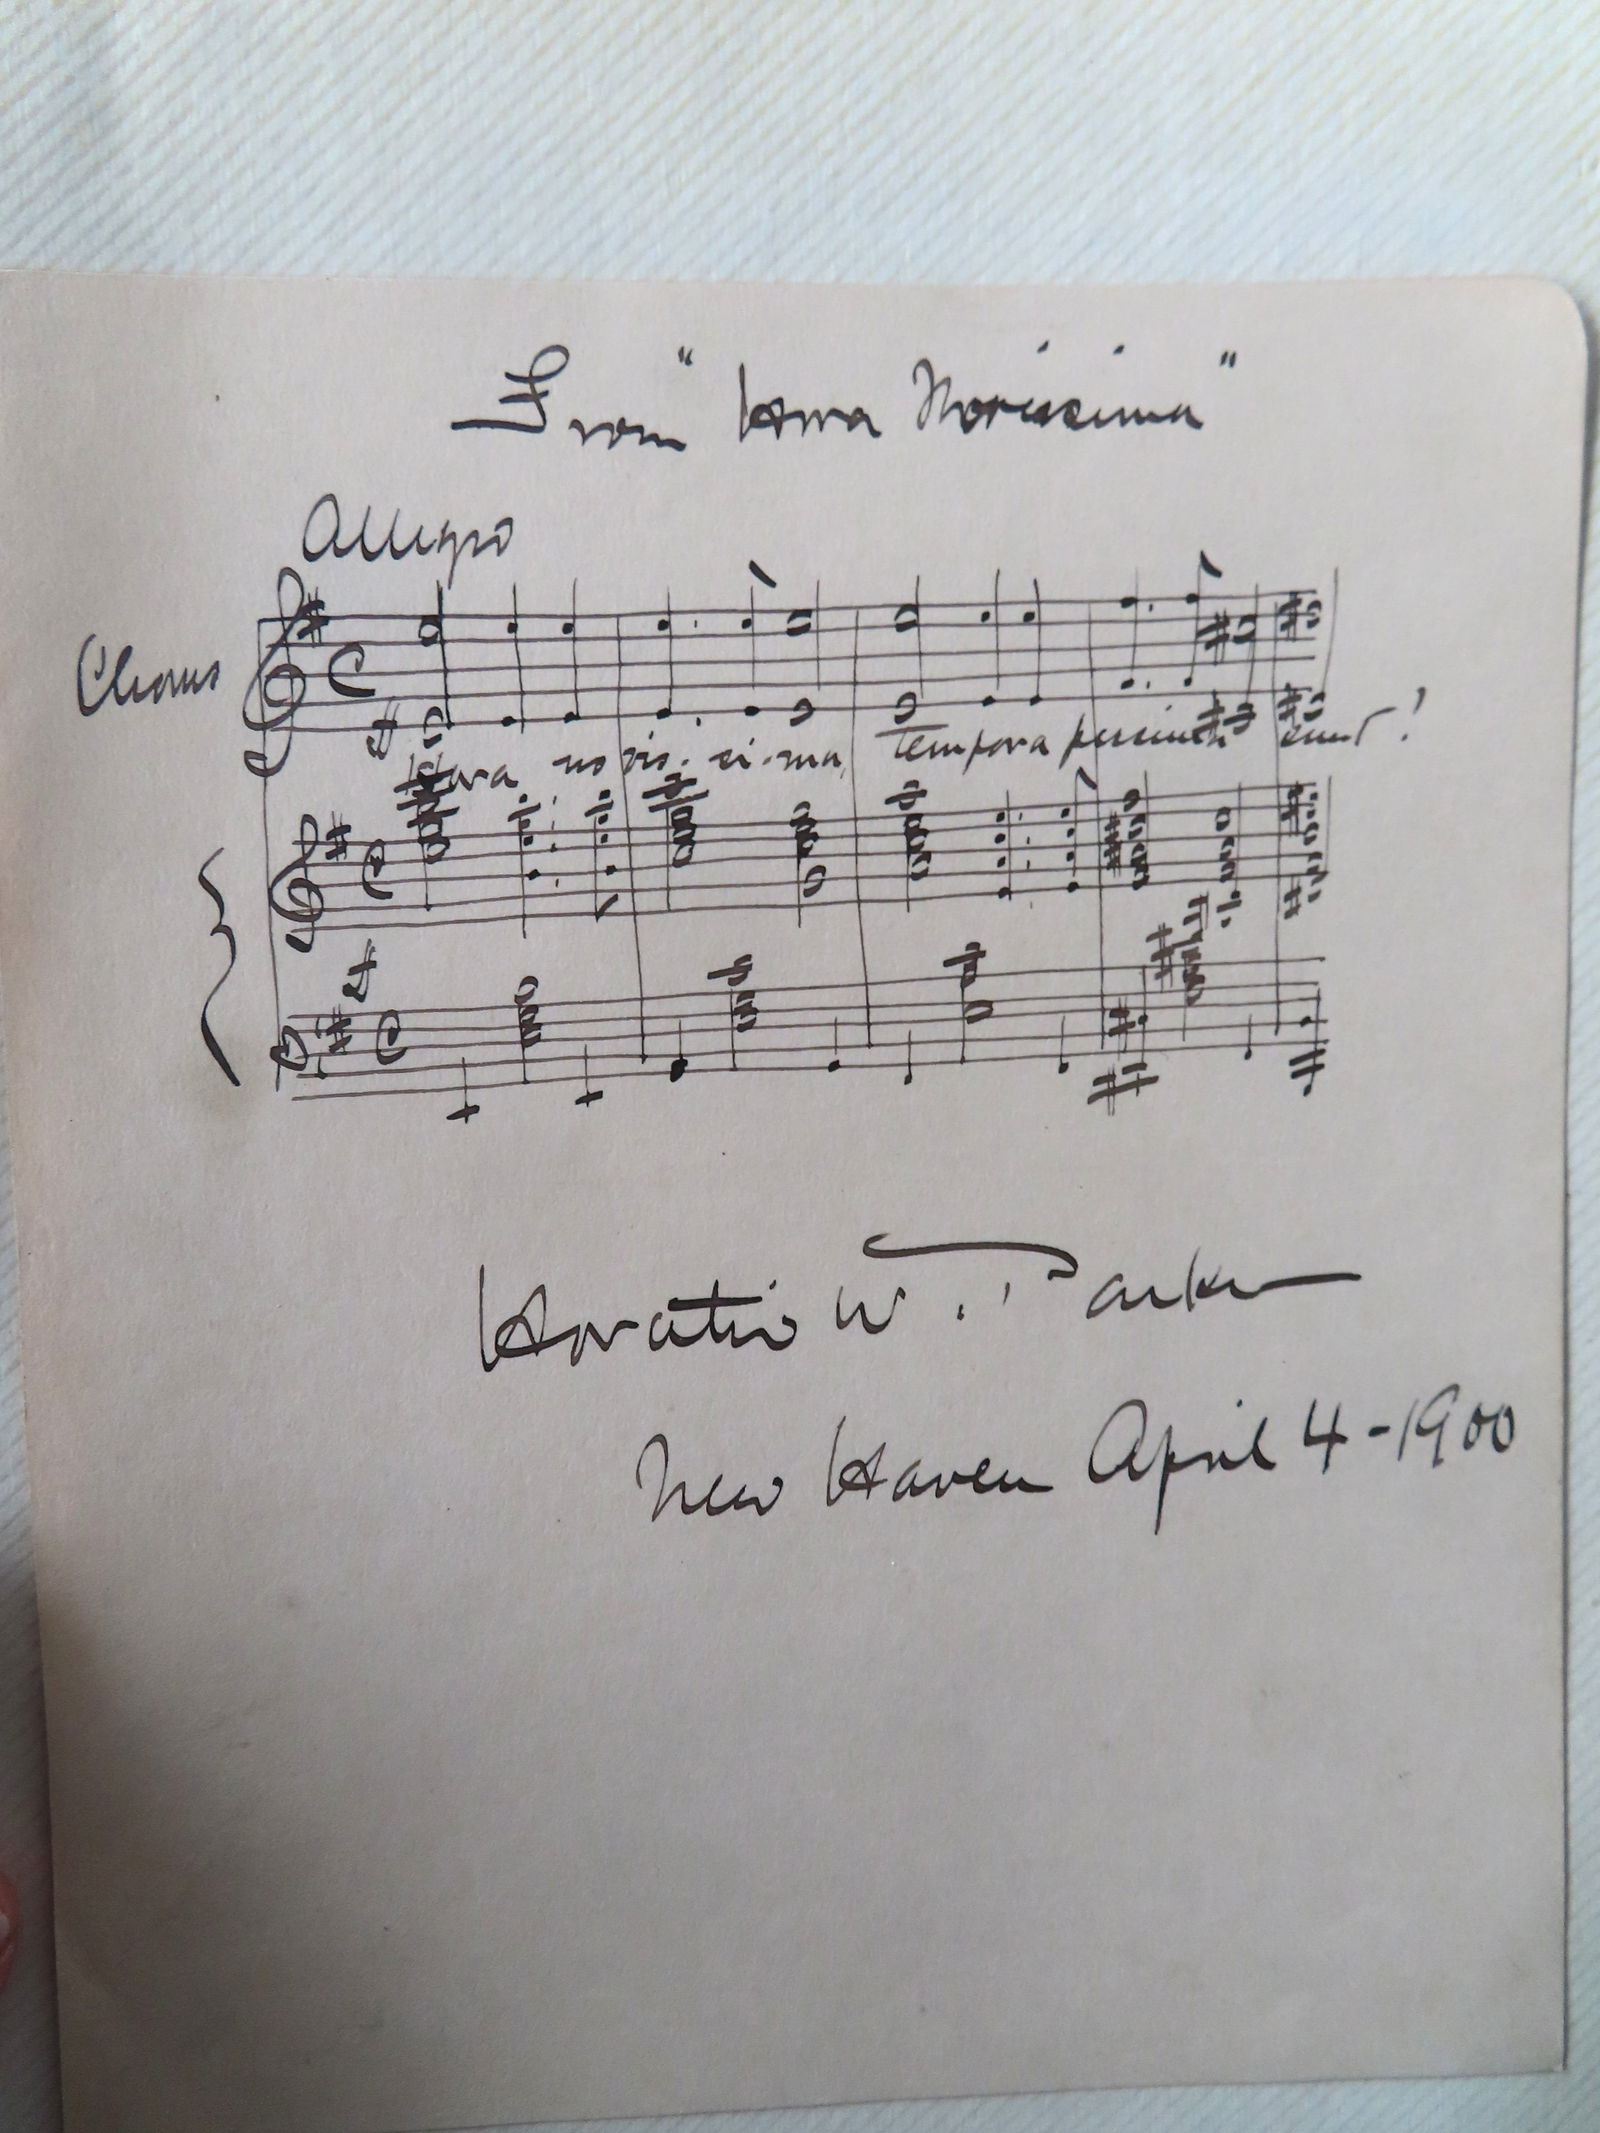 From "Hora Novissima"
Allegro
Chorus
Hora no vis. si. ma, Tempora pessima sunt!
Horatio W. Parker
New Haven April 4-1900